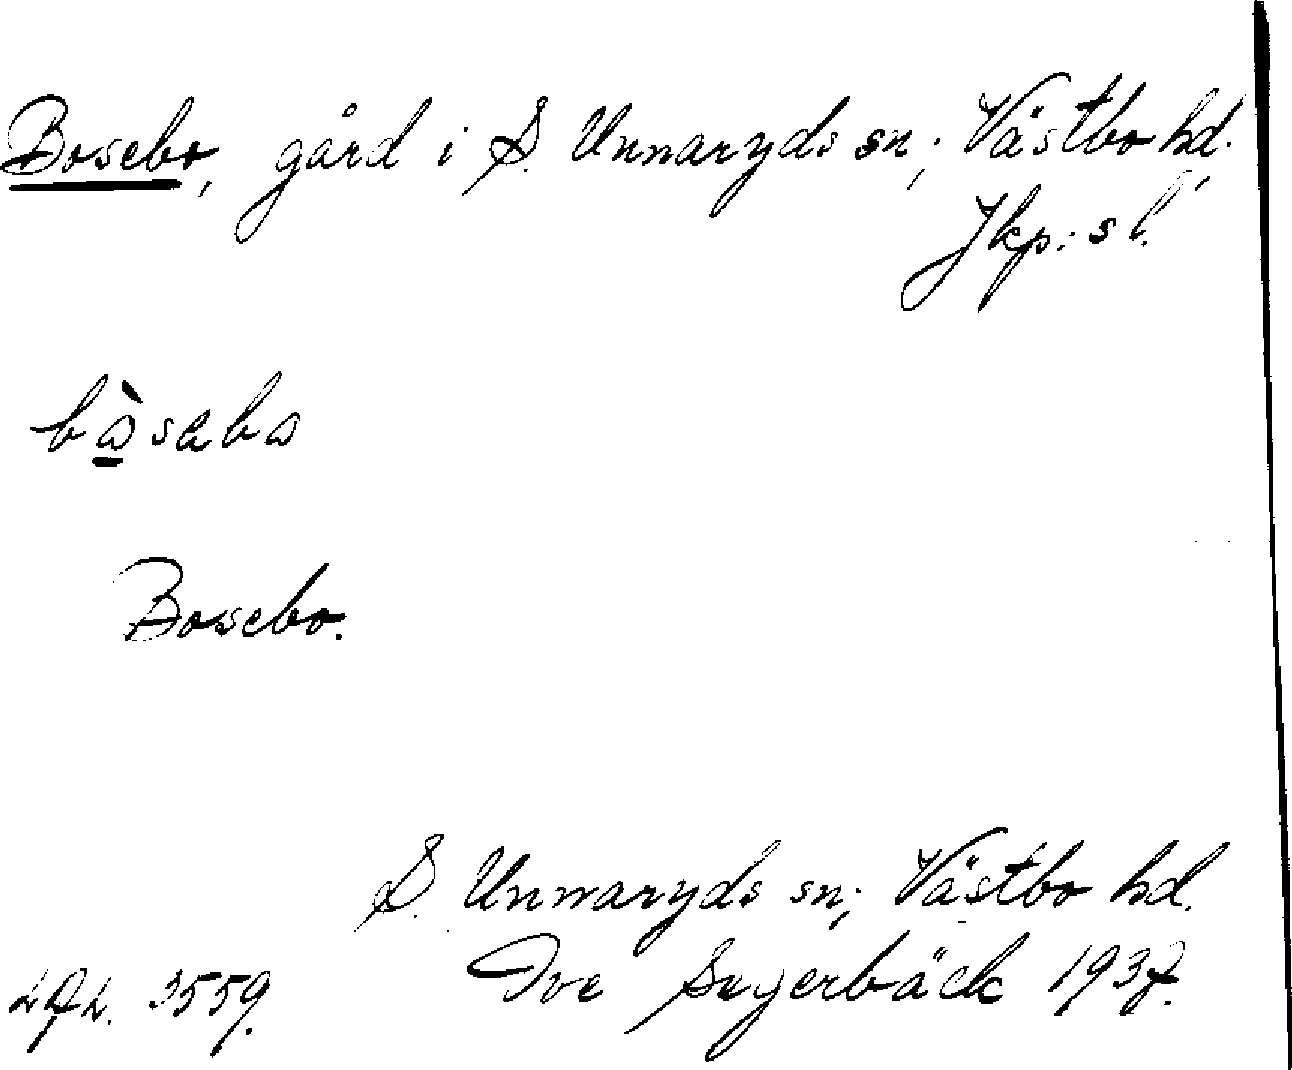 Bosebo, gård i S. Unnaryds sn; Västbo hd.
Jkp: s l.
bòsebo
Bosebo.
S. Unnaryds sn; Västbo hd.
Ive 1937.
3559.